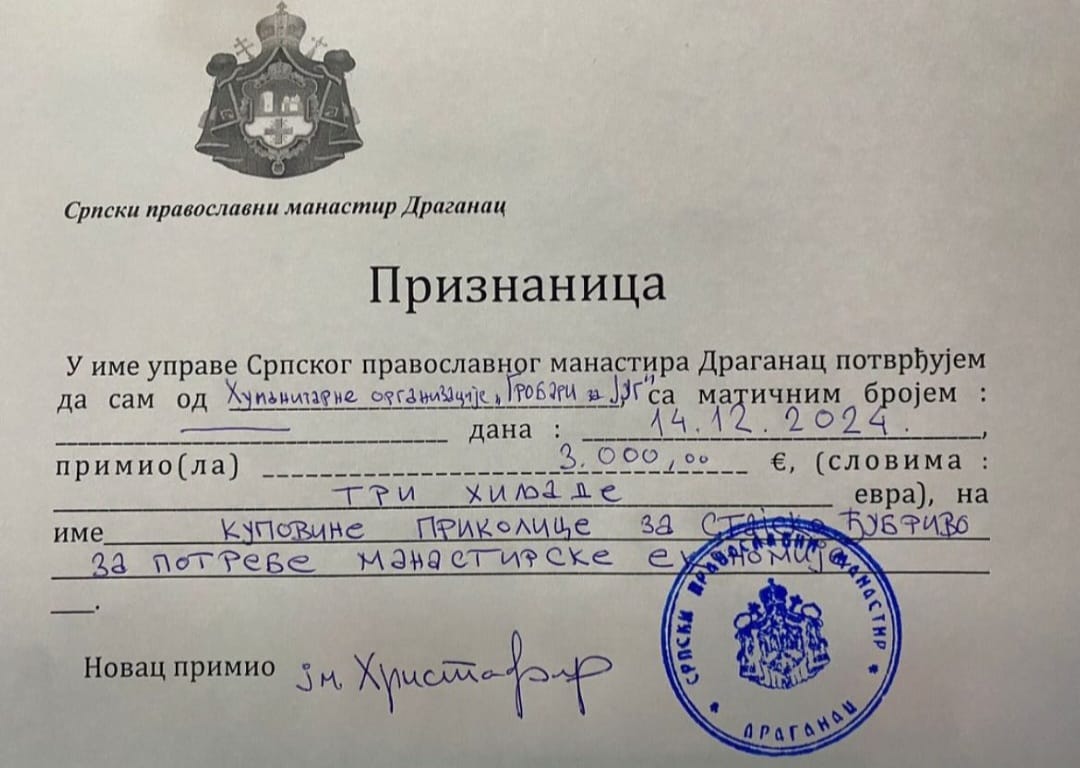 Српски православни манастир Драганац
Признаница
У име управе Српског православног манастира Драганац потврђујем
да сам од Хуманитарне организације „Гробари за Југ" са матичним бројем :
дана : 14.12.2024.,
примио(ла) 3.000,00 €, (словима :
три хиљаде евра), на
име куповине приколице за стајско ђубриво
за потребе манастирске економије
.
Новац примио јм Христофор
СРПСКИ ПРАВОСЛАВНИ МАНАСТИР
ДРАГАНАЦ